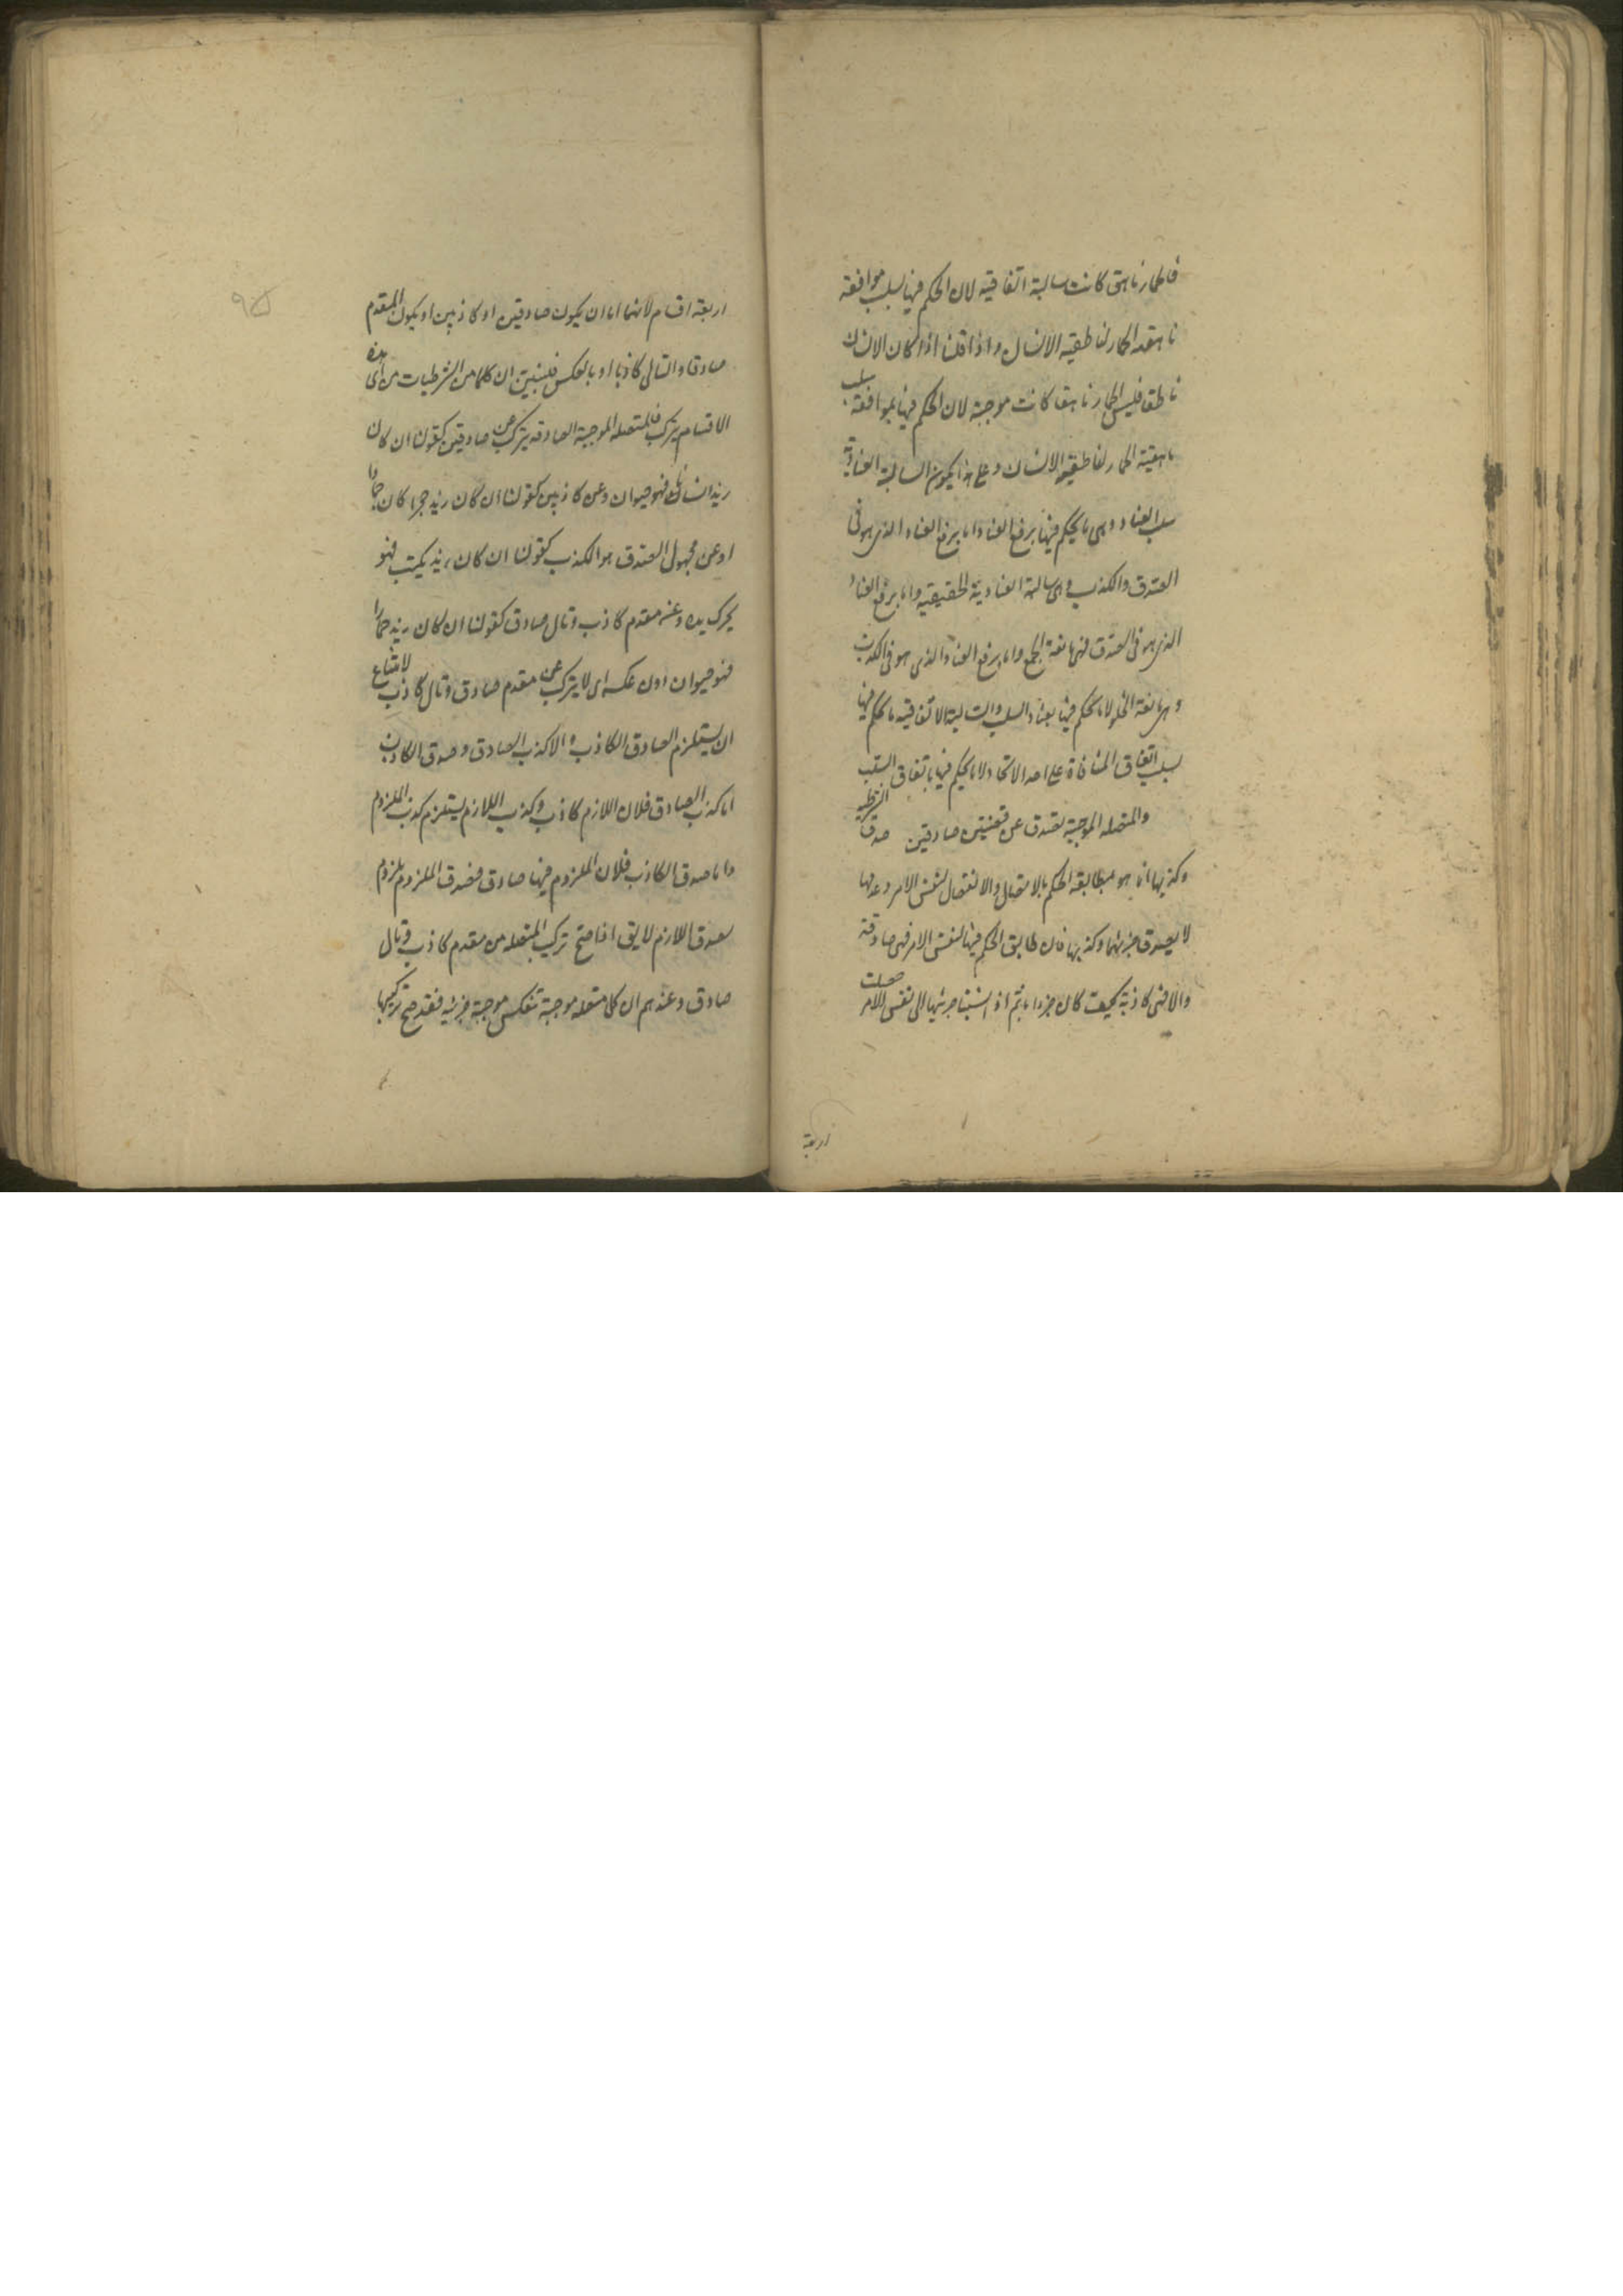 فالحمار ناهق كانت سالبة اتفاقية لان الحكم فيها بسلب موافقة
ناهقية الحمار لناطقية الانسان واذا قلنا اذا كان الانسان
ناطقا فليس الحمار ناهقا كانت موجبة لان الحكم فيها بموافقة سلب
ناهقية الحمار لناطقية الانسان وعلى هذا يكون السالبة العنادية
سلب العناد وهى ما يحكم فيها برفع العناد اما برفع العناد الذى هو فى
الصدق والكذب وهى سالبة العنادية الحقيقية واما برفع العناد
الذى هو فى الصدق فهى مانعة الجمع واما برفع العناد الذى هو فى الكذب
وهى مانعة الخلو لا ما يحكم فيها بعناد السلب والسالبة الاتفاقية ما يحكم فيها
بسلب اتفاق المنافاة على احد الانحاء لا ما يحكم فيها باتفاق السلب
والمتصلة الموجبة تصدق عن قضيتين صادقين صدق الشرطية
وكذبها انما هو بمطابقة الحكم بالاتصال والانفصال لنفس الامر وعدمها
لا بصدق جزئيها وكذبها فان طابق الحكم فيها لنفس الامر فهى صادقة
والا فهى كاذبة كيف كان جزءاها ثم اذا نسبنا جزئيها الى نفس الامر حصلت
اربعة
اربعة اقسام لانهما اما ان يكون صادقين او كاذبين او يكون المقدم
صادقا والتالى كاذبا او بالعكس فلنبين ان كلا من الشرطيات من اى هذه
الاقسام يتركب فالمتصلة الموجبة الصادقة يتركب عن صادقين كقولنا ان كان
زيد انسانا فهو حيوان وعن كاذبين كقولنا ان كان زيد حجرا كان جمادا
او عن مجهول الصدق والكذب كقولنا ان كان زيد يكتب فهو
يحرك يده وعن مقدم كاذب وتال صادق كقولنا ان كان زيد حمارا
فهو حيوان دون عكسه اى لا يتركب عن مقدم صادق وتال كاذب لامتناع
ان يستلزم الصادق الكاذب والا كذب الصادق وصدق الكاذب
اما كذب الصادق فلان اللازم كاذب وكذب اللازم يستلزم كذب الملزوم
واما صدق الكاذب فلان الملزوم فيها صادق فصدق الملزوم يلزم
صدق اللازم لا يق اذا صح تركب المتصلة من مقدم كاذب وتال
صادق وعندهم ان كل متصلة موجبة تنعكس موجبة جزئية فقد صح تركيبها